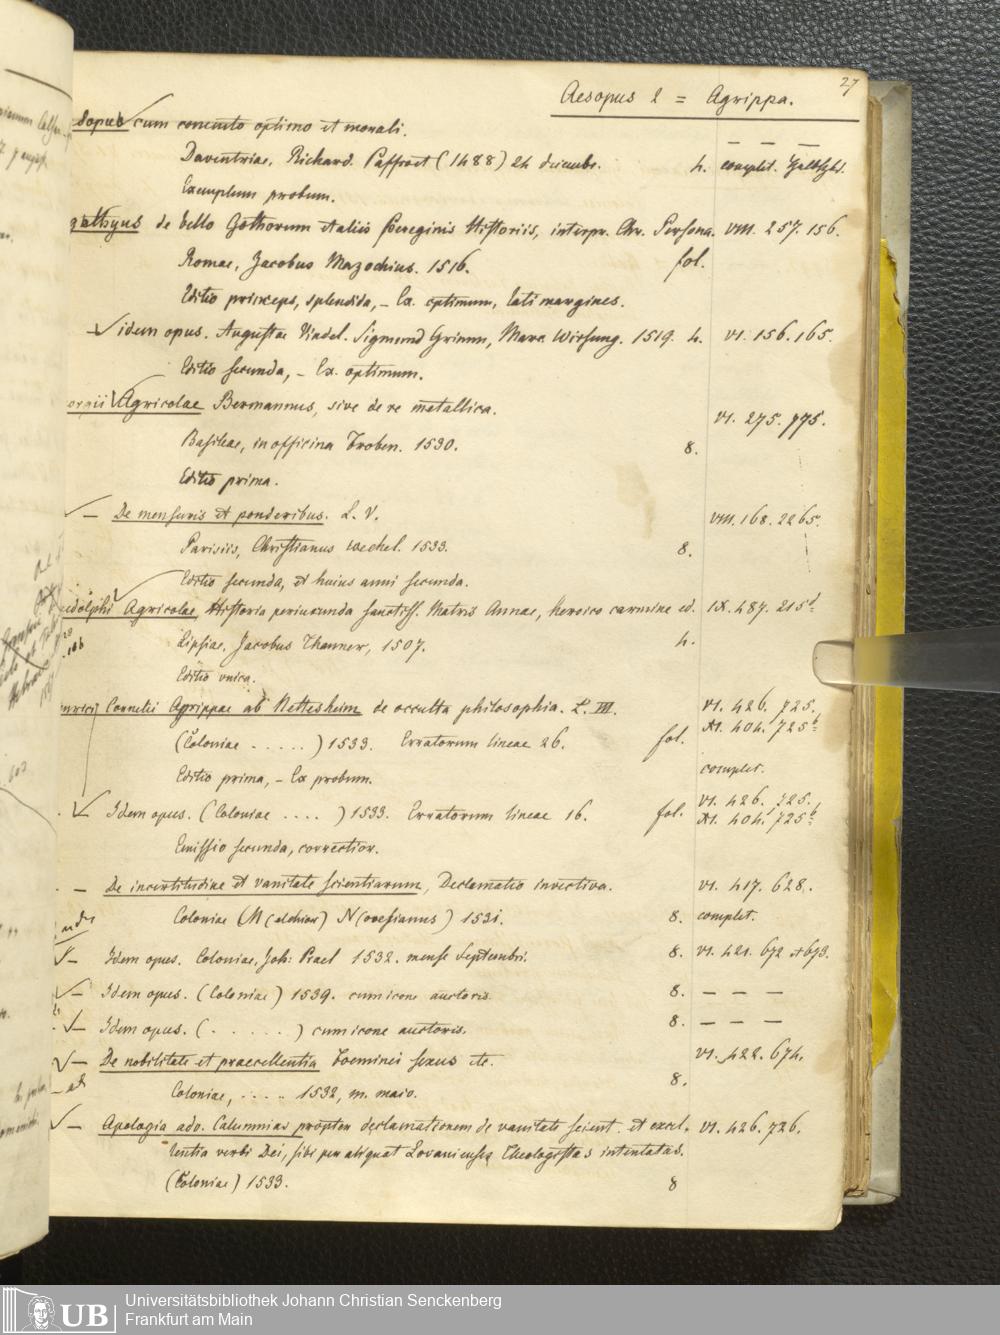 27
Aesopus 2 = Agrippa.
Aesopus cum comento optimo et morali.
Daventriae, Richard. Paffroet (1488) 24 decembr. 4. complet.
Exemplum probum.
Agathyus de bello Gothorum et aliis Peregrinis Historiis, interpr. Chr. Persona. VIII. 257. 156.
Romae, Jacobus Mazochius. 1516. fol.
Editio princeps, splendida, – Ex. optimum, lati margines.
– idem opus. Augustae Vindel. Sigmund Grimm, Marc. Wirsung. 1519. 4. VI. 156. 165.
Editio secunda, – Ex. optimum.
Georgii Agricolae Bermannus, sive de re metallica. VI. 275. 775.
Basileae, in officina Froben. 1530. 8.
Editio prima.
– De mensuris et ponderibus. L. V. VIII. 168. 2265.
Parisiis, Christianus Wechel. 1533. 8.
Editio secunda, et huius anni secunda.
Rudolphi Agricolae, Historia periucunda sanctiss. Matris Annae, heroico carmine ed. IX. 487. 215d
Lipsiae, Jacobus Thanner, 1507. 4.
Editio unica.
Henrici Cornelii Agrippae ab Nettesheim de occulta philosophia. L. III. VI. 426. 725.
XI. 404. 725b
(Coloniae . . . . . ) 1533. Erratorum lineae 26. fol.
Editio prima, – Ex probum. complet.
– Idem opus. (Coloniae . . . . ) 1533. Erratorum lineae 16. fol. VI. 426. 725.
XI. 404. 725b
Emissio secunda, correctior.
– De incertitudine et vanitate scientiarum, Declamatio invectiva. VI. 417. 628.
Coloniae (M(elchior) N(ovesianus) 1531. 8. complet.
– Idem opus. Coloniae, Joh: Prael 1532. mense Septembri. 8. VI. 421. 672 et 673.
– Idem opus. (Coloniae) 1539. cum icone auctoris. 8. – – –
– Idem opus. ( . . . . . ) cum icone auctoris. 8. – – –
– De nobilitate et praecellentia Foeminei sexus etc. VI. 422. 674.
Coloniae, . . . . 1532, m. maio. 8.
– Apologia adv. Calumnias propter declamationem de vanitate scient. et excel- VI. 426. 726.
lentia verbi Dei, sibi per aliquot Lovanienses Theologistas intentatas.
(Coloniae) 1533. 8
UB
Universitätsbibliothek Johann Christian Senckenberg
Frankfurt am Main